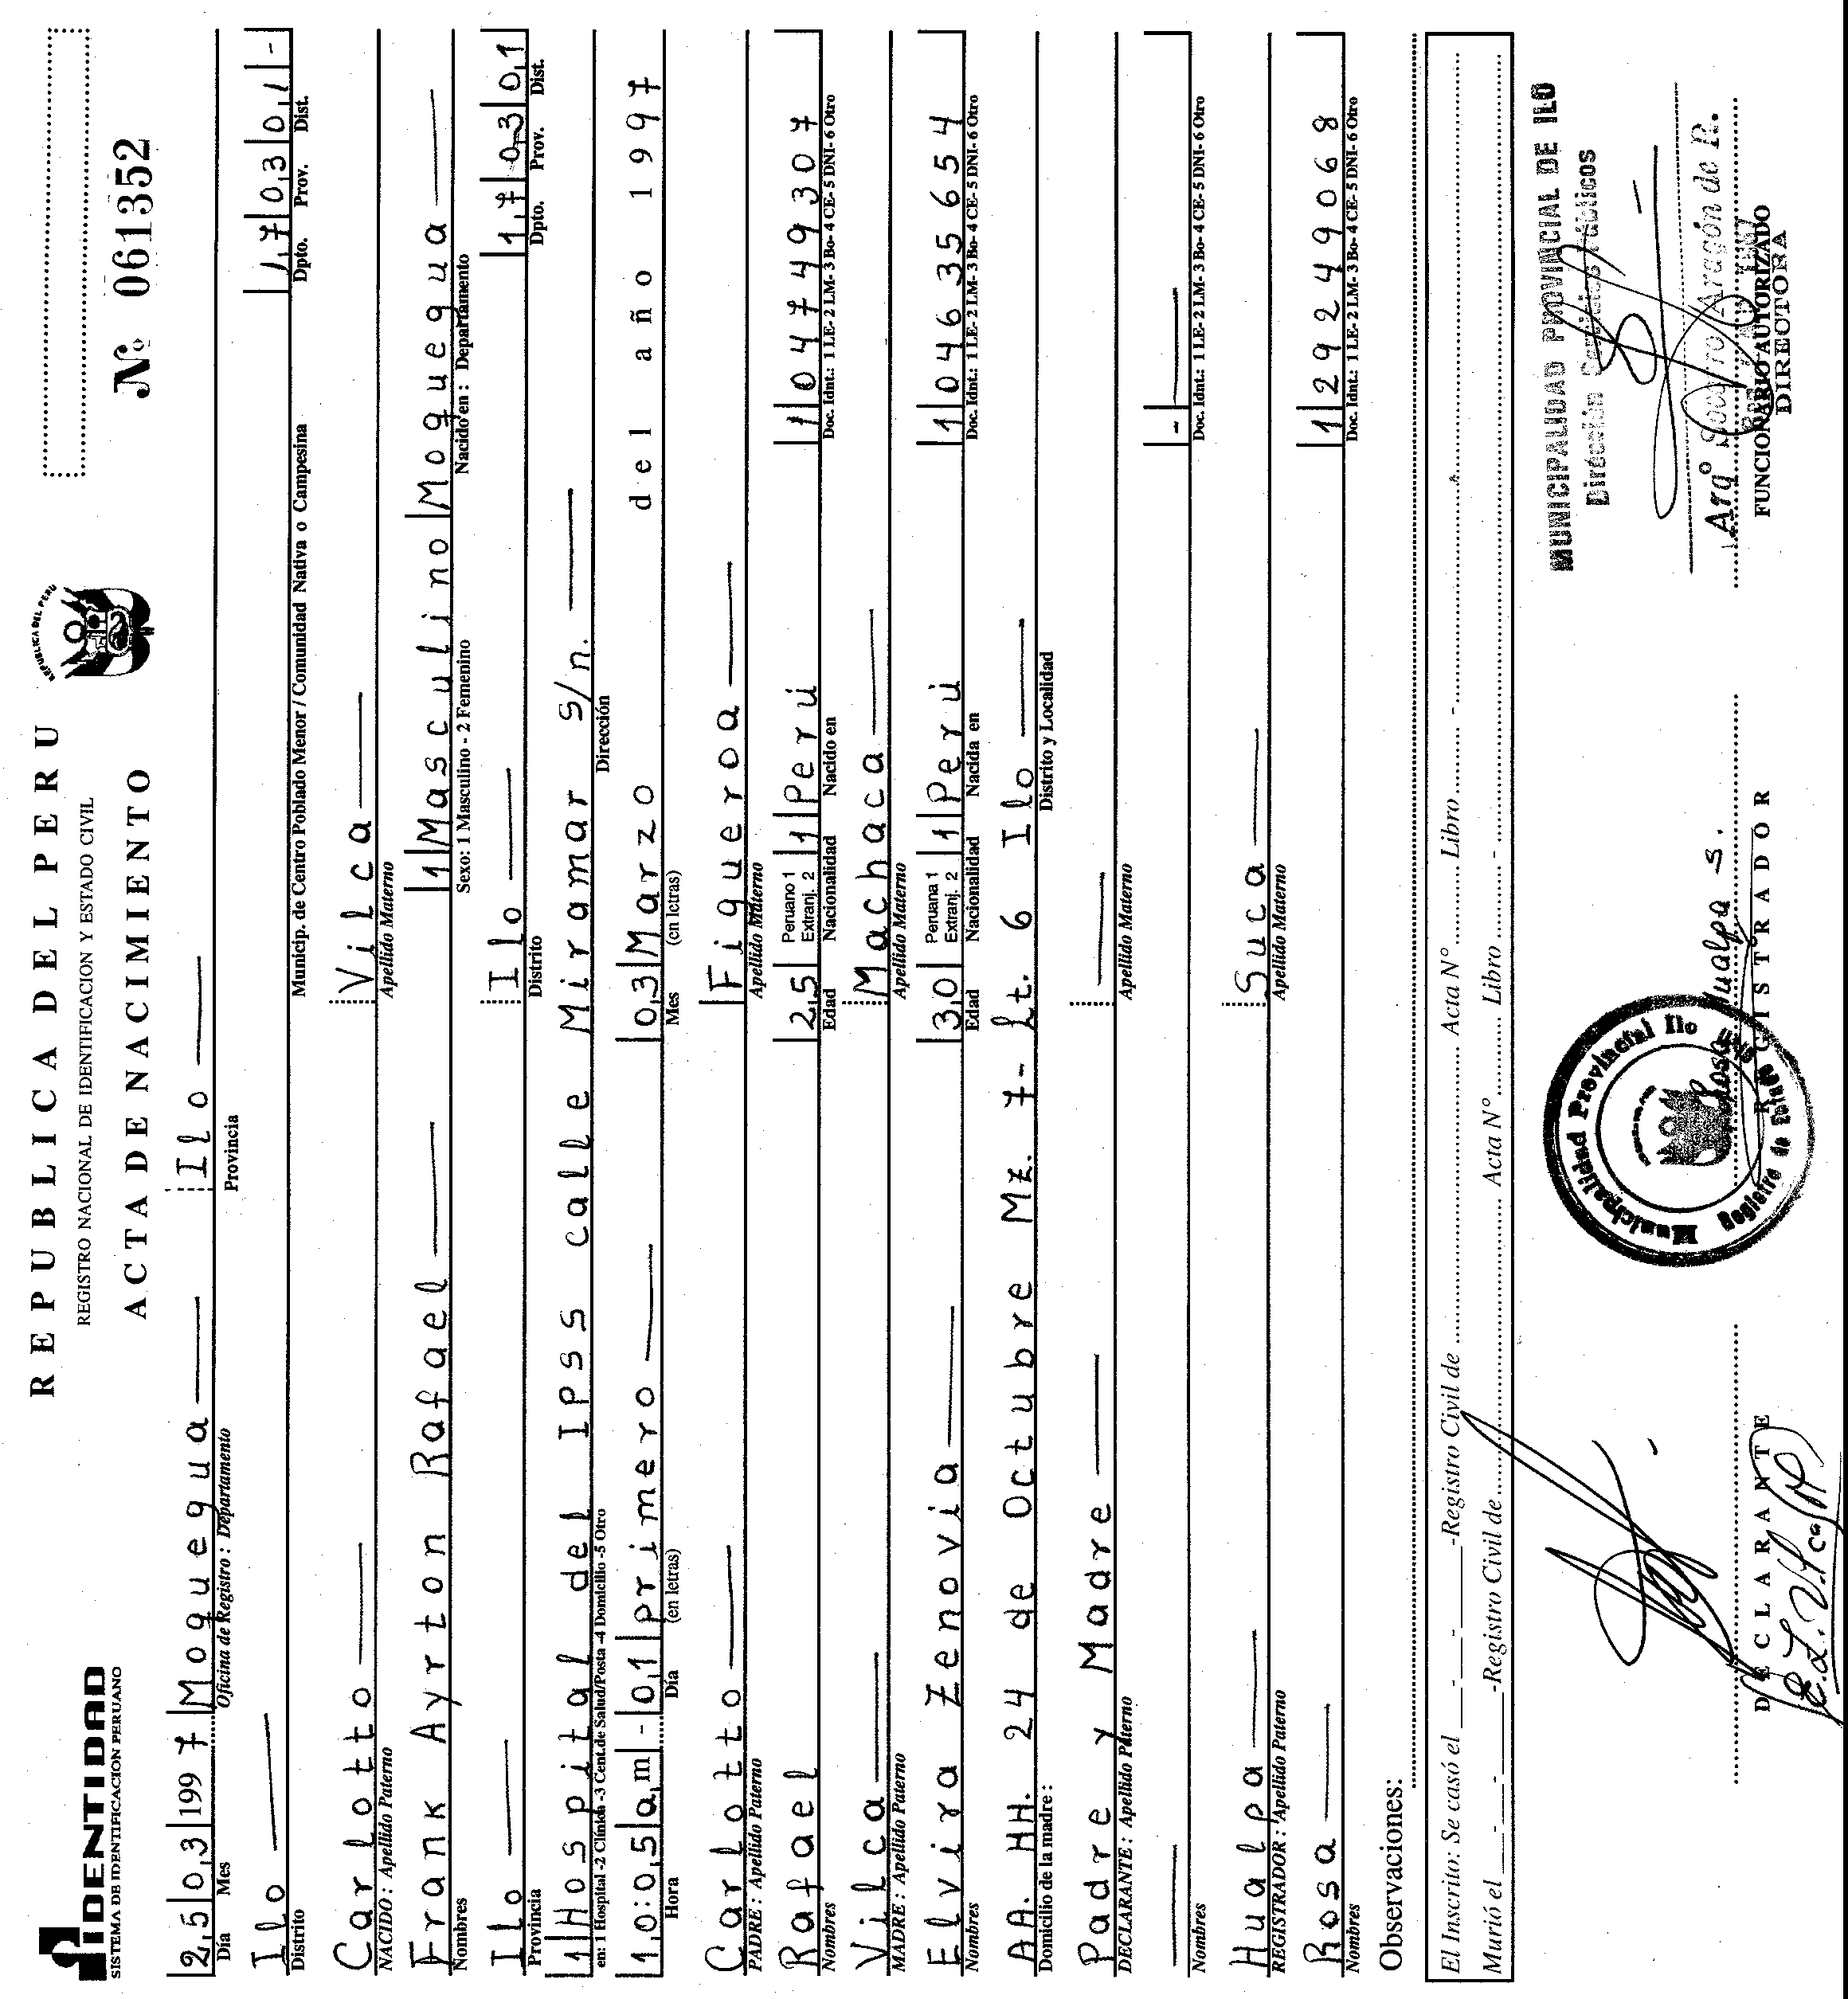 IDENTIDAD
SISTEMA DE IDENTIFICACION PERUANO
REPUBLICA DEL PERU
REGISTRO NACIONAL DE IDENTIFICACION Y ESTADO CIVIL
ACTA DE NACIMIENTO
REPUBLICA DEL PERU
Nº 061352
25 03 1997 Moquegua Ilo
Día Mes Oficina de Registro : Departamento Provincia
Ilo 17 03 01 -
Distrito Municip. de Centro Poblado Menor / Comunidad Nativa o Campesina Dpto. Prov. Dist.
Carlotto Vilca
NACIDO : Apellido Paterno Apellido Materno
Frank Ayrton Rafael 1 Masculino Moquegua
Nombres Sexo: 1 Masculino - 2 Femenino Nacido en : Departamento
Ilo Ilo 17 03 01
Provincia Distrito Dpto. Prov. Dist.
1 Hospital del IPSS calle Miramar s/n.
en: 1 Hospital -2 Clínica -3 Cent.de Salud/Posta -4 Domicilio -5 Otro Dirección
10:05 a,m - 01 primero 03 Marzo del año 1997
Hora Día (en letras) Mes (en letras)
Carlotto Figueroa
PADRE : Apellido Paterno Apellido Materno
Rafael 25 Peruano 1 Extranj. 2 1 Perú 1 04749307
Nombres Edad Nacionalidad Nacido en Doc. Idnt.: 1 LE- 2 LM- 3 Bo- 4 CE- 5 DNI- 6 Otro
Vilca Machaca
MADRE : Apellido Paterno Apellido Materno
Elvira Zenovia 30 Peruana 1 Extranj. 2 1 Perú 1 04635654
Nombres Edad Nacionalidad Nacida en Doc. Idnt.: 1 LE- 2 LM- 3 Bo- 4 CE- 5 DNI- 6 Otro
AA. HH. 24 de Octubre Mz. 7- Lt. 6 Ilo
Domicilio de la madre : Distrito y Localidad
Padre y Madre
DECLARANTE : Apellido Paterno Apellido Materno
-
Nombres Doc. Idnt.: 1 LE- 2 LM- 3 Bo- 4 CE- 5 DNI- 6 Otro
Hualpa Suca
REGISTRADOR : Apellido Paterno Apellido Materno
Rosa 1 29249068
Nombres Doc. Idnt.: 1 LE- 2 LM- 3 Bo- 4 CE- 5 DNI- 6 Otro
Observaciones:
El Inscrito: Se casó el - - -Registro Civil de Acta Nº Libro -
Murió el - - -Registro Civil de Acta Nº Libro -
MUNICIPALIDAD PROVINCIAL DE ILO
Dirección Servicios Públicos
Municipalidad Provincial Ilo
Registro de Estado Civil
Rosa Hualpa S.
Arqº Socorro Aragón de R.
DECLARANTE
REGISTRADOR
FUNCIONARIO AUTORIZADO
DIRECTORA